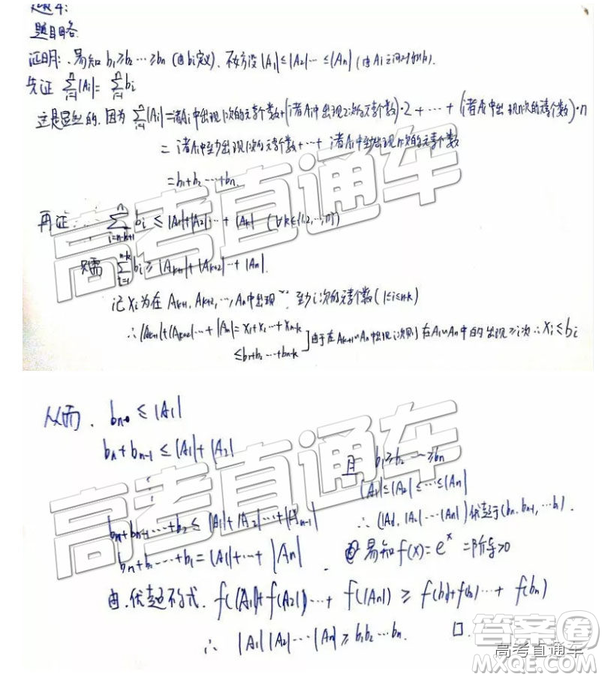 题目略
证明:易知 b₁≥b₂…≥bₙ (由bᵢ定义). 不妨设 |A₁|≤|A₂|…≤|Aₙ| (由Aᵢ之间对称性).
先证 ∑ᵢ₌₁ⁿ|Aᵢ| = ∑ᵢ₌₁ⁿ bᵢ
这是显然的. 因为 ∑ᵢ₌₁ⁿ|Aᵢ| = 诸Aᵢ中出现1次的元素个数+(诸Aᵢ中出现2次的元素个数)·2+…+(诸Aᵢ中出现n次的元素个数)·n
= 诸Aᵢ中至少出现1次的元素个数+…+诸Aᵢ中至少出现n次的元素个数
= b₁+b₂…+bₙ.
再证: ∑ᵢ₌ₙ₋ₖ₊₁ⁿ bᵢ ≤ |A₁|+|A₂|…+|Aₖ| (∀k∈{1,2,…,n})
只需 ∑ᵢ₌₁ⁿ⁻ᵏ bᵢ ≥ |Aₖ₊₁|+|Aₖ₊₂|…+|Aₙ|.
记Xᵢ为在Aₖ₊₁,Aₖ₊₂,…,Aₙ中出现 至少i次的元素个数(1≤i≤n-k)
∴|Aₖ₊₁|+|Aₖ₊₂|…+|Aₙ| = X₁+X₂…+Xₙ₋ₖ
≤b₁+b₂…+bₙ₋ₖ
由于在Aₖ₊₁~Aₙ中出现i次则在A₁~Aₙ中的出现≥i次 ∴Xᵢ≤bᵢ
从而. bₙ ≤ |A₁|
bₙ+bₙ₋₁ ≤ |A₁|+|A₂|
且 b₁≥b₂…≥bₙ
|A₁|≤|A₂|≤…≤|Aₙ|
bₙ+bₙ₋₁…+b₂ ≤ |A₁|+|A₂|…+|Aₙ₋₁|
∴(|A₁|,|A₂|…|Aₙ|)优超于(bₙ,bₙ₋₁,…b₁).
bₙ+bₙ₋₁…+b₁ = |A₁|+…+|Aₙ|
易知f(x)=eˣ 二阶导>0
由优超不等式. f(|A₁|)+f(|A₂|)…+f(|Aₙ|) ≥ f(b₁)+f(b₂)…+f(bₙ)
∴ |A₁||A₂|…|Aₙ| ≥ b₁b₂…bₙ. □.
高考直通车
高考直通车
答案圈
高考直通车
MXQE.COM